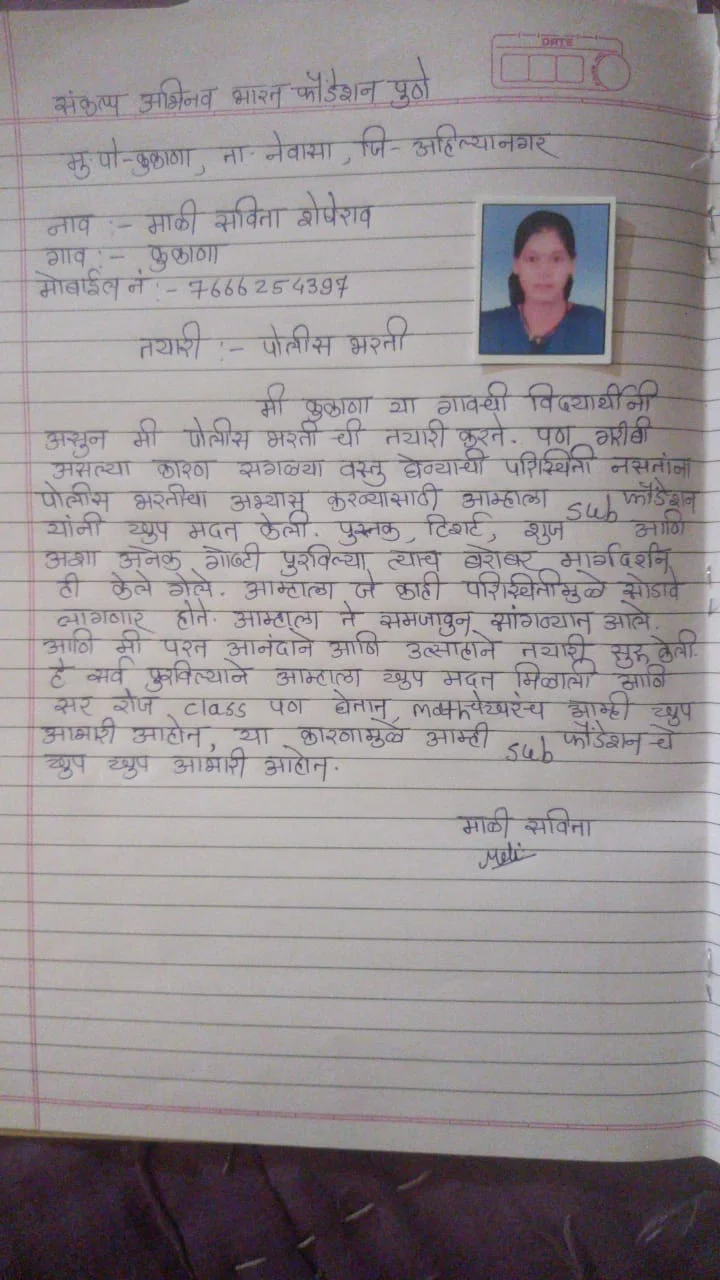 DATE
संकल्प अभिनव भारत फौंडेशन पुणे
मु.पो-कुकाणा, ता. नेवासा, जि- अहिल्यानगर
नाव :- माळी सविता शेषेराव
गाव :- कुकाणा
मोबाईल नं :- 7666254397
तयारी :- पोलीस भरती
मी कुकाणा या गावची विद्यार्थीनी
असुन मी पोलीस भरती ची तयारी करते. पण गरीबी
असल्या कारण सगळ्या वस्तु घेण्याची परिस्थिती नसतांना
पोलीस भरतीचा अभ्यास करण्यासाठी आम्हाला sub फौंडेशन
यांनी खुप मदत केली. पुस्तक, टिशर्ट, शुज आणि
अशा अनेक गोष्टी पुरविल्या त्याच बरोबर मार्गदर्शन
ही केले गेले. आम्हाला जे काही परिस्थितीमुळे सोडावे
लागणार होते. आम्हाला ते समजावुन सांगण्यात आले.
आणि मी परत आनंदाने आणि उत्साहाने तयारी सुरू केली.
हे सर्व पुरविल्याने आम्हाला खुप मदत मिळाली आणि
सर रोज class पण घेतात, आम्ही खुप
आभारी आहोत, या कारणामुळे आम्ही sub फौंडेशन चे
खुप खुप आभारी आहोत.
माळी सविता